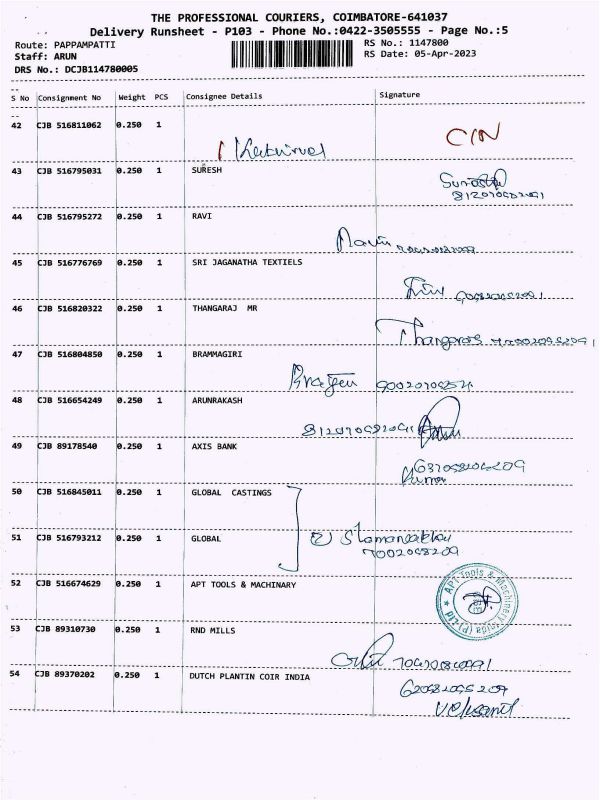 THE PROFESSIONAL COURIERS, COIMBATORE-641037
Delivery Runsheet - P103 - Phone No.:0422-3505555 - Page No.:5
Route: PAPPAMPATTI
RS No.: 1147800
Staff: ARUN
RS Date: 05-Apr-2023
DRS No.: DCJB114780005
S No Consignment No Weight PCS Consignee Details Signature
42 CJB 516811062 0.250 1
CIN
43 CJB 516795031 0.250 1 SURESH
44 CJB 516795272 0.250 1 RAVI
45 CJB 516776769 0.250 1 SRI JAGANATHA TEXTIELS
46 CJB 516820322 0.250 1 THANGARAJ MR
47 CJB 516804850 0.250 1 BRAMMAGIRI
48 CJB 516654249 0.250 1 ARUNRAKASH
49 CJB 89178540 0.250 1 AXIS BANK
Kumar
50 CJB 516845011 0.250 1 GLOBAL CASTINGS
51 CJB 516793212 0.250 1 GLOBAL
52 CJB 516674629 0.250 1 APT TOOLS & MACHINARY
APT Tools & Machinery India (P) Ltd
53 CJB 89310730 0.250 1 RND MILLS
54 CJB 89370202 0.250 1 DUTCH PLANTIN COIR INDIA